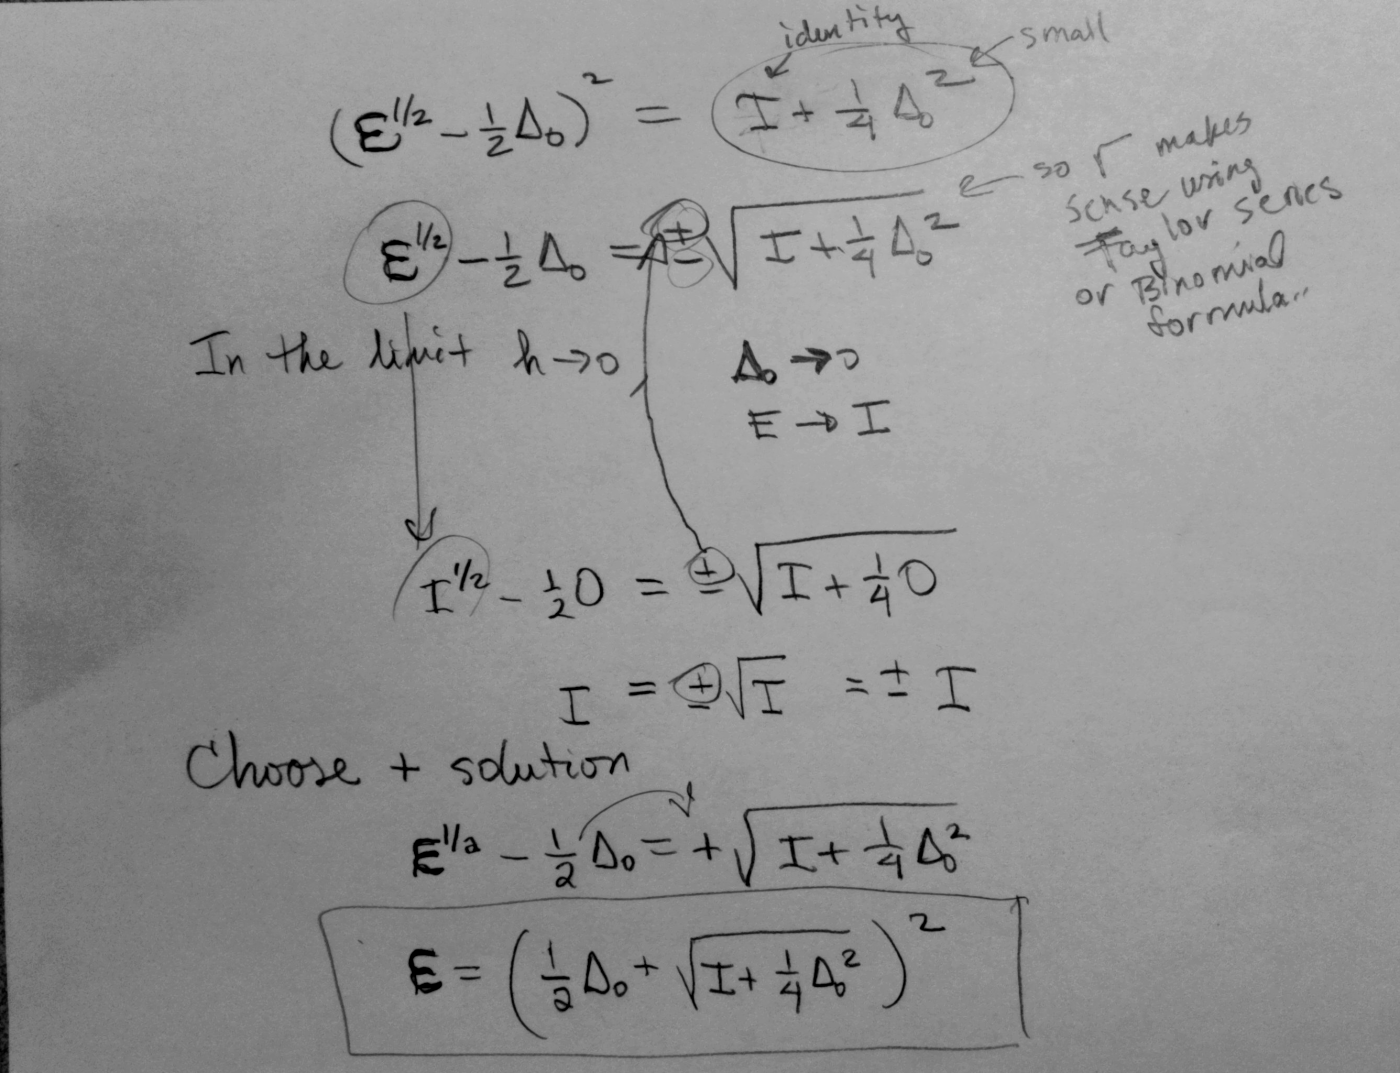 identity
small
(E^{1/2} - \frac{1}{2}Δ₀)² = I + \frac{1}{4}Δ₀²
so √ makes
sense using
Taylor series
or Binomial
formula..
E^{1/2} - \frac{1}{2}Δ₀ = ±√(I + \frac{1}{4}Δ₀²)
In the limit h→0
Δ₀ → 0
E → I
I^{1/2} - \frac{1}{2}0 = ±√(I + \frac{1}{4}0)
I = ±√I = ± I
Choose + solution
E^{1/2} - \frac{1}{2}Δ₀ = +√(I + \frac{1}{4}Δ₀²)
E = (\frac{1}{2}Δ₀ + √(I + \frac{1}{4}Δ₀²))²